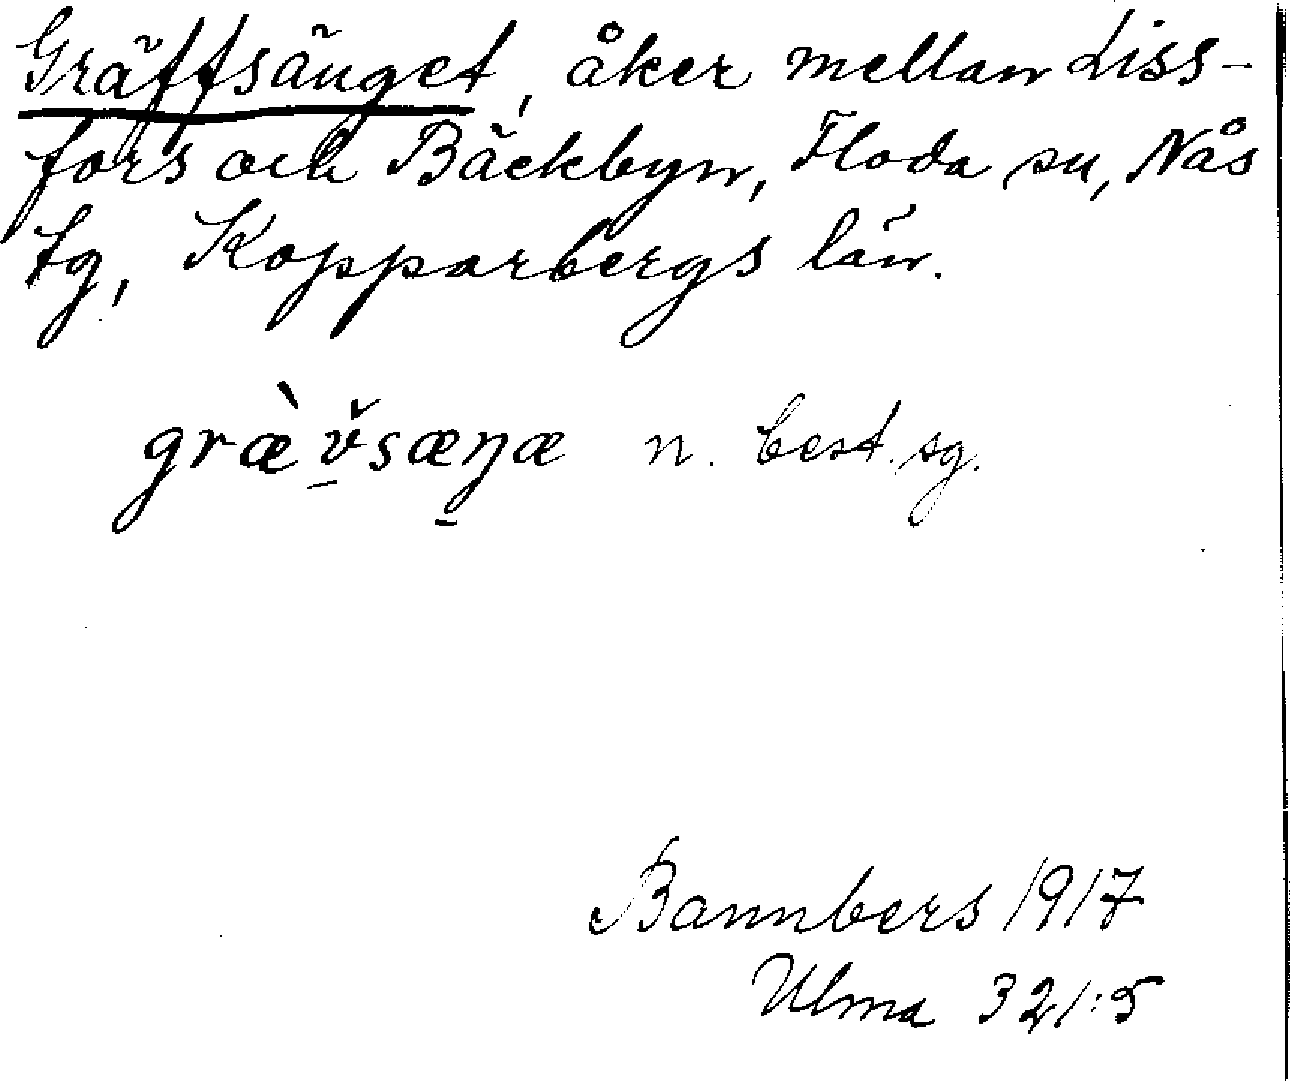 Gräffsänget, åker mellan Liss-
fors och Bäckbyn, Floda sn, Nås
tg, Kopparbergs län.
græ̀v̌sæŋæ n. best. sg.
Bannbers 1917
Ulma 321:5